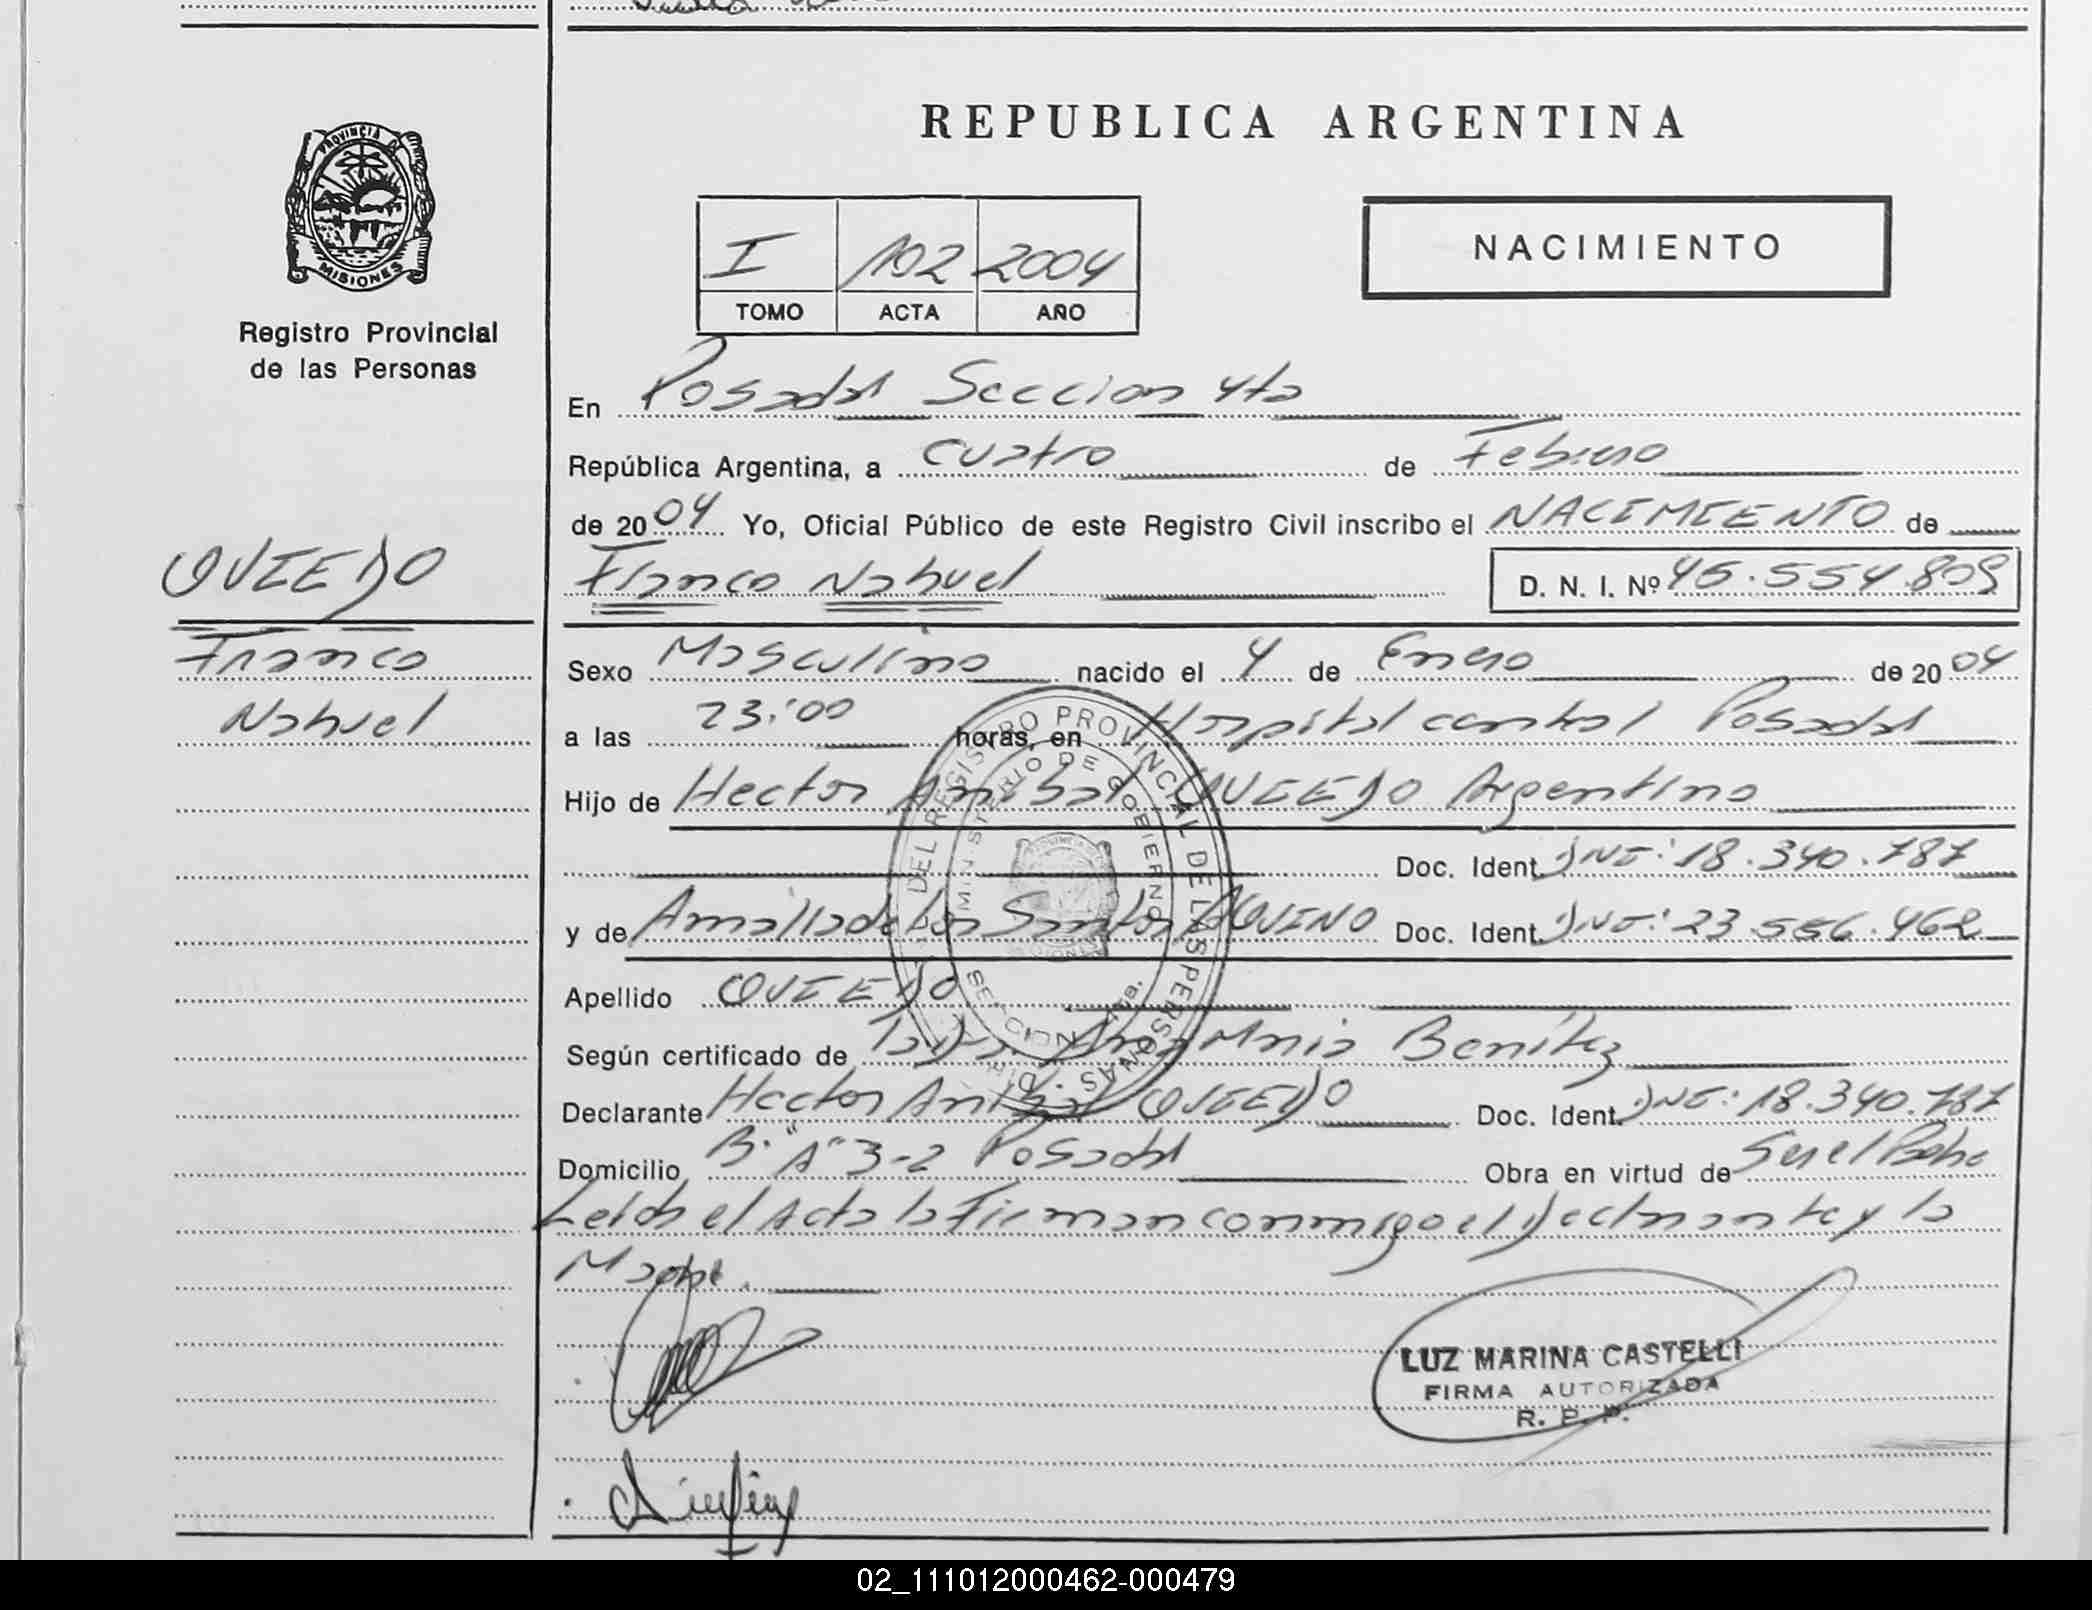 REPUBLICA ARGENTINA
PROVINCIA DE
MISIONES
Registro Provincial
de las Personas
I 102 2004
TOMO ACTA AÑO
NACIMIENTO
En Posadas Seccion 4ta
República Argentina, a cuatro de Febrero
de 2004 Yo, Oficial Público de este Registro Civil inscribo el NACIMIENTO de
Franco Nahuel D. N. I. Nº 45.554.809
OVIEDO
Franco
Nahuel
Sexo Masculino nacido el 4 de Enero de 2004
a las 23:00 horas, en Hospital central Posadas
Hijo de Hector Anibal OVIEDO Argentino
Doc. Ident. DNI: 18.340.787
y de Amalia de los Santos AQUINO Doc. Ident. DNI: 23.556.462
Apellido OVIEDO
Según certificado de Ana Maria Benítez
Declarante Hector Anibal OVIEDO Doc. Ident. DNI: 18.340.787
Domicilio B. "A" 3-2 Posadas Obra en virtud de Ser el Padre
Leida el Acta la Firman conmigo el Declarante y la
Madre.
DEL REGISTRO PROVINCIAL DE LAS PERSONAS
MINISTERIO DE GOBIERNO
SECCION 4ta.
LUZ MARINA CASTELLI
FIRMA AUTORIZADA
R. P. P.
02_111012000462-000479